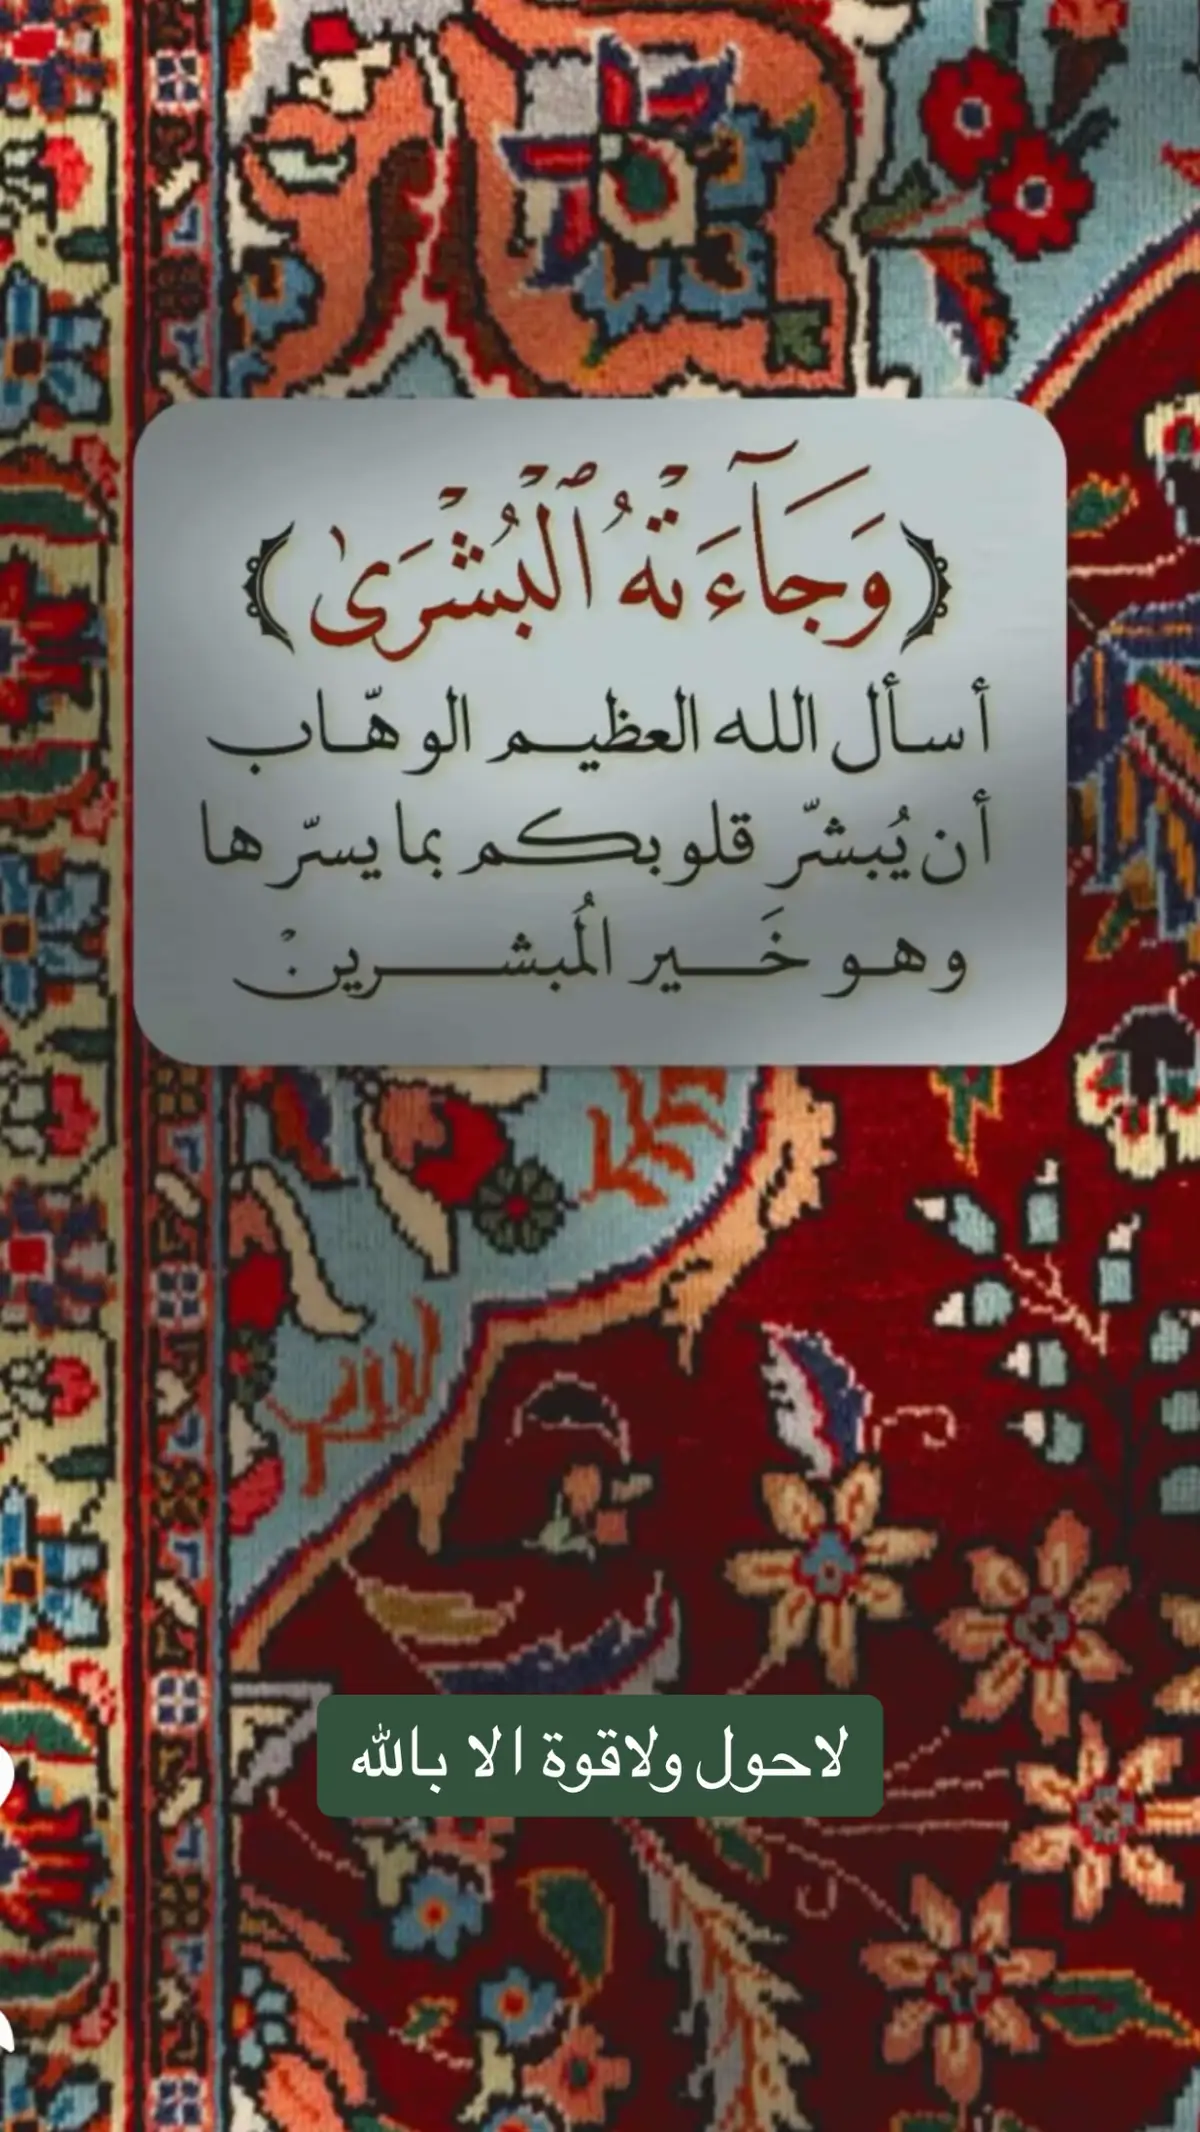 ﴿وَجَآءَتۡهُ ٱلۡبُشۡرَىٰ﴾
أسأل الله العظيم الوهّاب
أن يُبشّر قلوبكم بما يسرّها
وهو خَير المُبشرينۡ
لاحول ولاقوة الا بالله